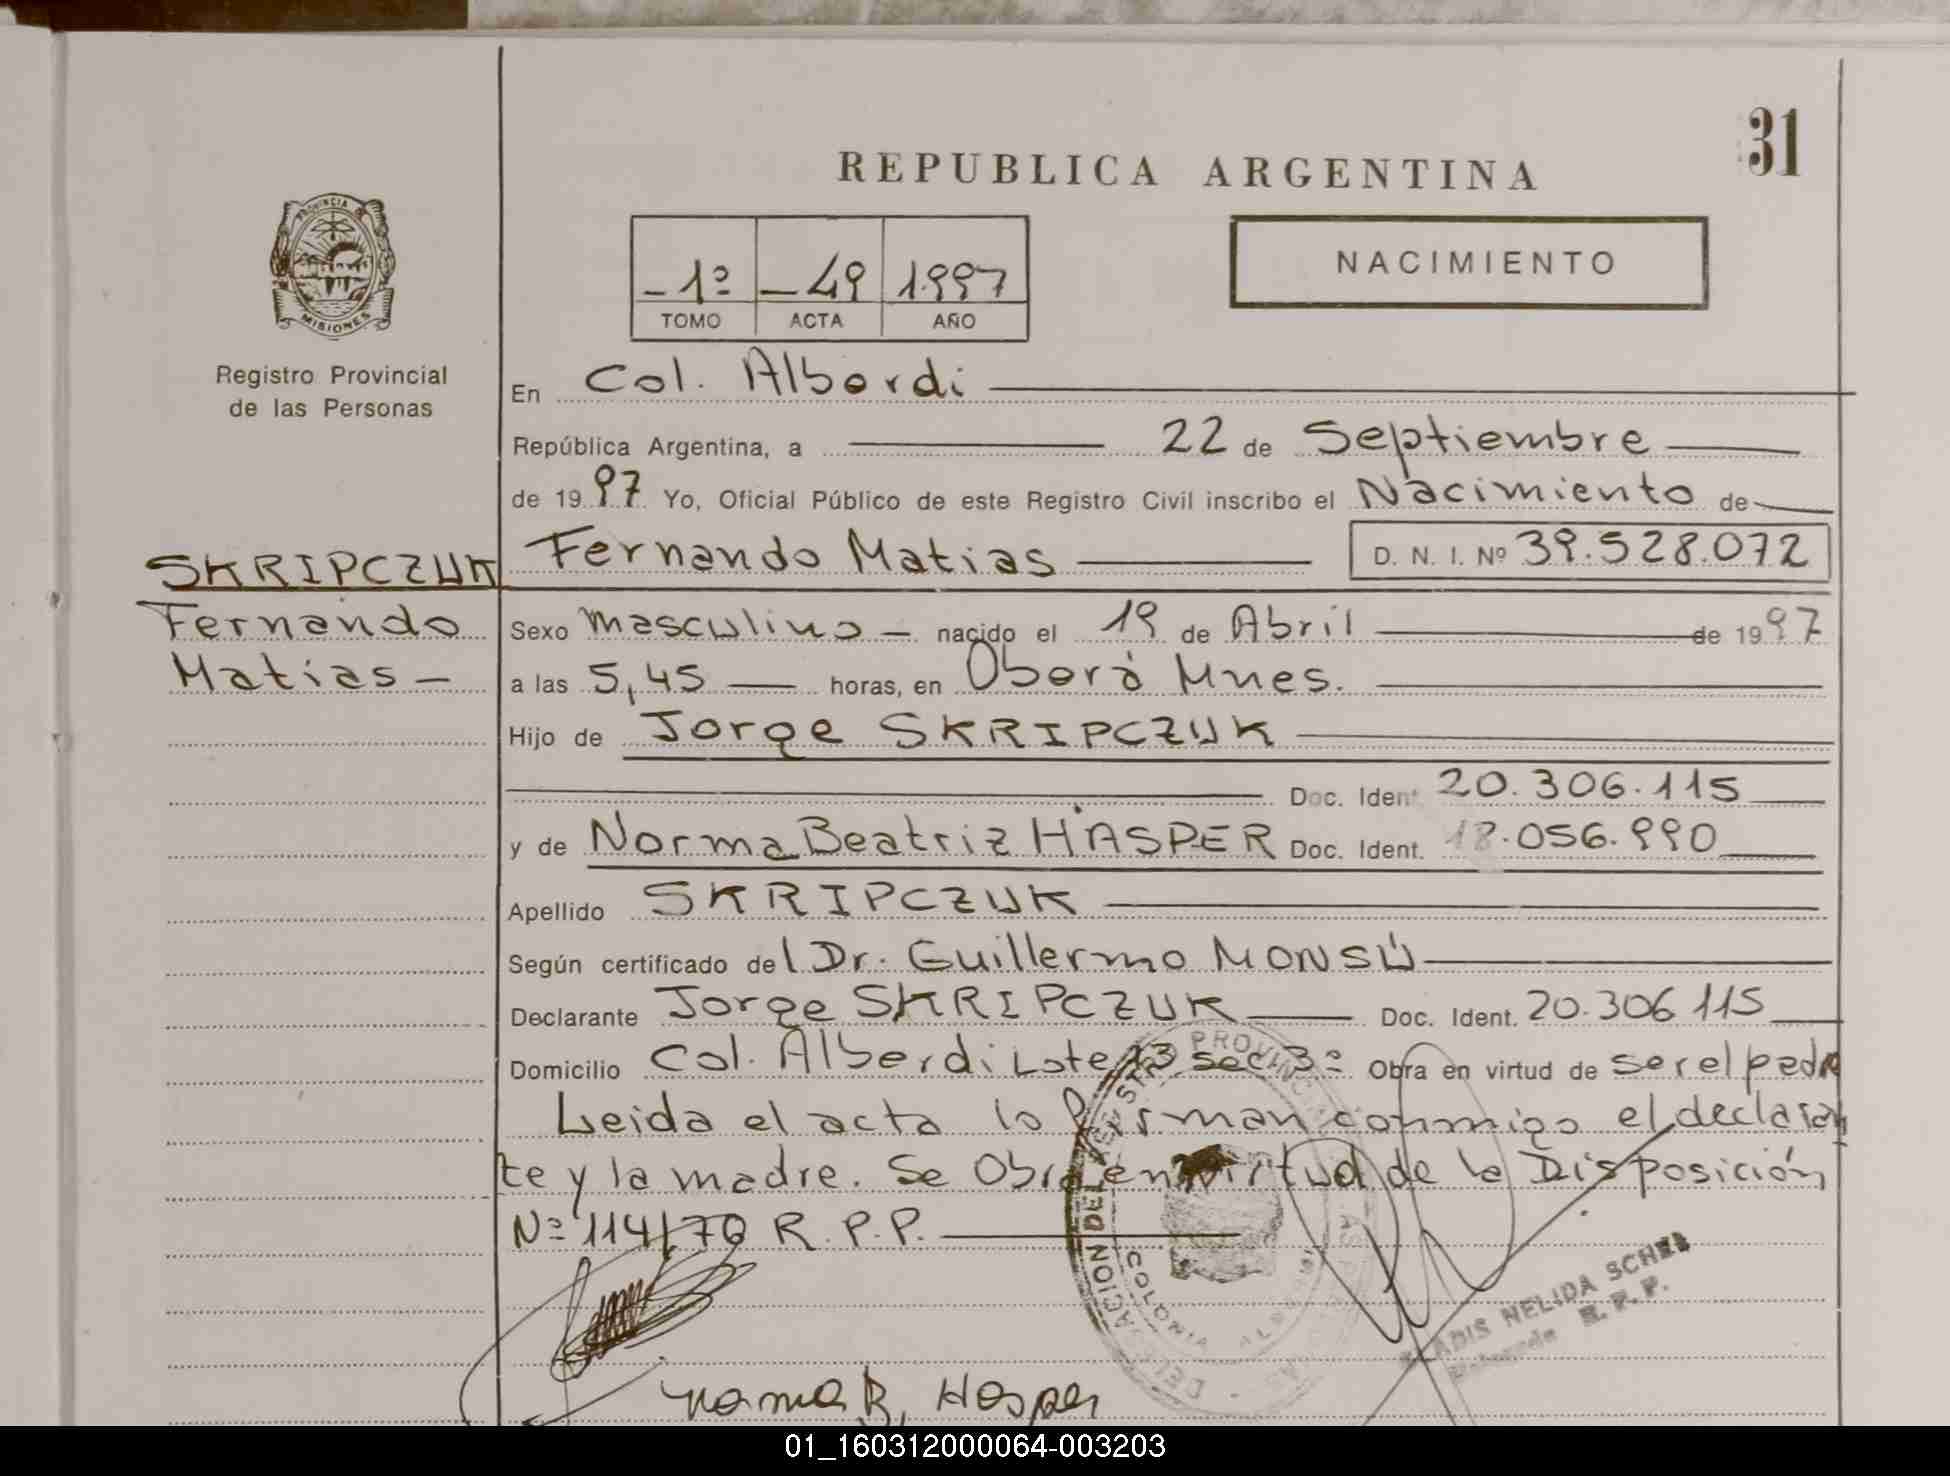 31
REPUBLICA ARGENTINA
PROVINCIA
MISIONES
Registro Provincial
de las Personas
-1º -49 1.997
TOMO ACTA AÑO
NACIMIENTO
En Col. Alberdi
República Argentina, a 22 de Septiembre
de 1997 Yo, Oficial Público de este Registro Civil inscribo el Nacimiento de
SKRIPCZUK Fernando Matias D. N. I. Nº 39.528.072
Fernando
Matias -
Sexo masculino - nacido el 19 de Abril de 1997
a las 5,45 horas, en Oberá Mnes.
Hijo de Jorge SKRIPCZUK
Doc. Ident. 20.306.115
y de Norma Beatriz HASPER Doc. Ident. 18.056.990
Apellido SKRIPCZUK
Según certificado del Dr. Guillermo MONSÚ
Declarante Jorge SKRIPCZUK Doc. Ident. 20.306 115
Domicilio Col. Alberdi Lote 23 sec 3º Obra en virtud de ser el padre
Leida el acta lo firman conmigo el declaran
te y la madre. Se Obra en virtud de la Disposición
Nº 114/70 R.P.P.
DELEGACION DEL REGISTRO PROVINCIAL
COLONIA ALBERDI
NELIDA
R.P.P.
Norma B, Hasper
01_160312000064-003203